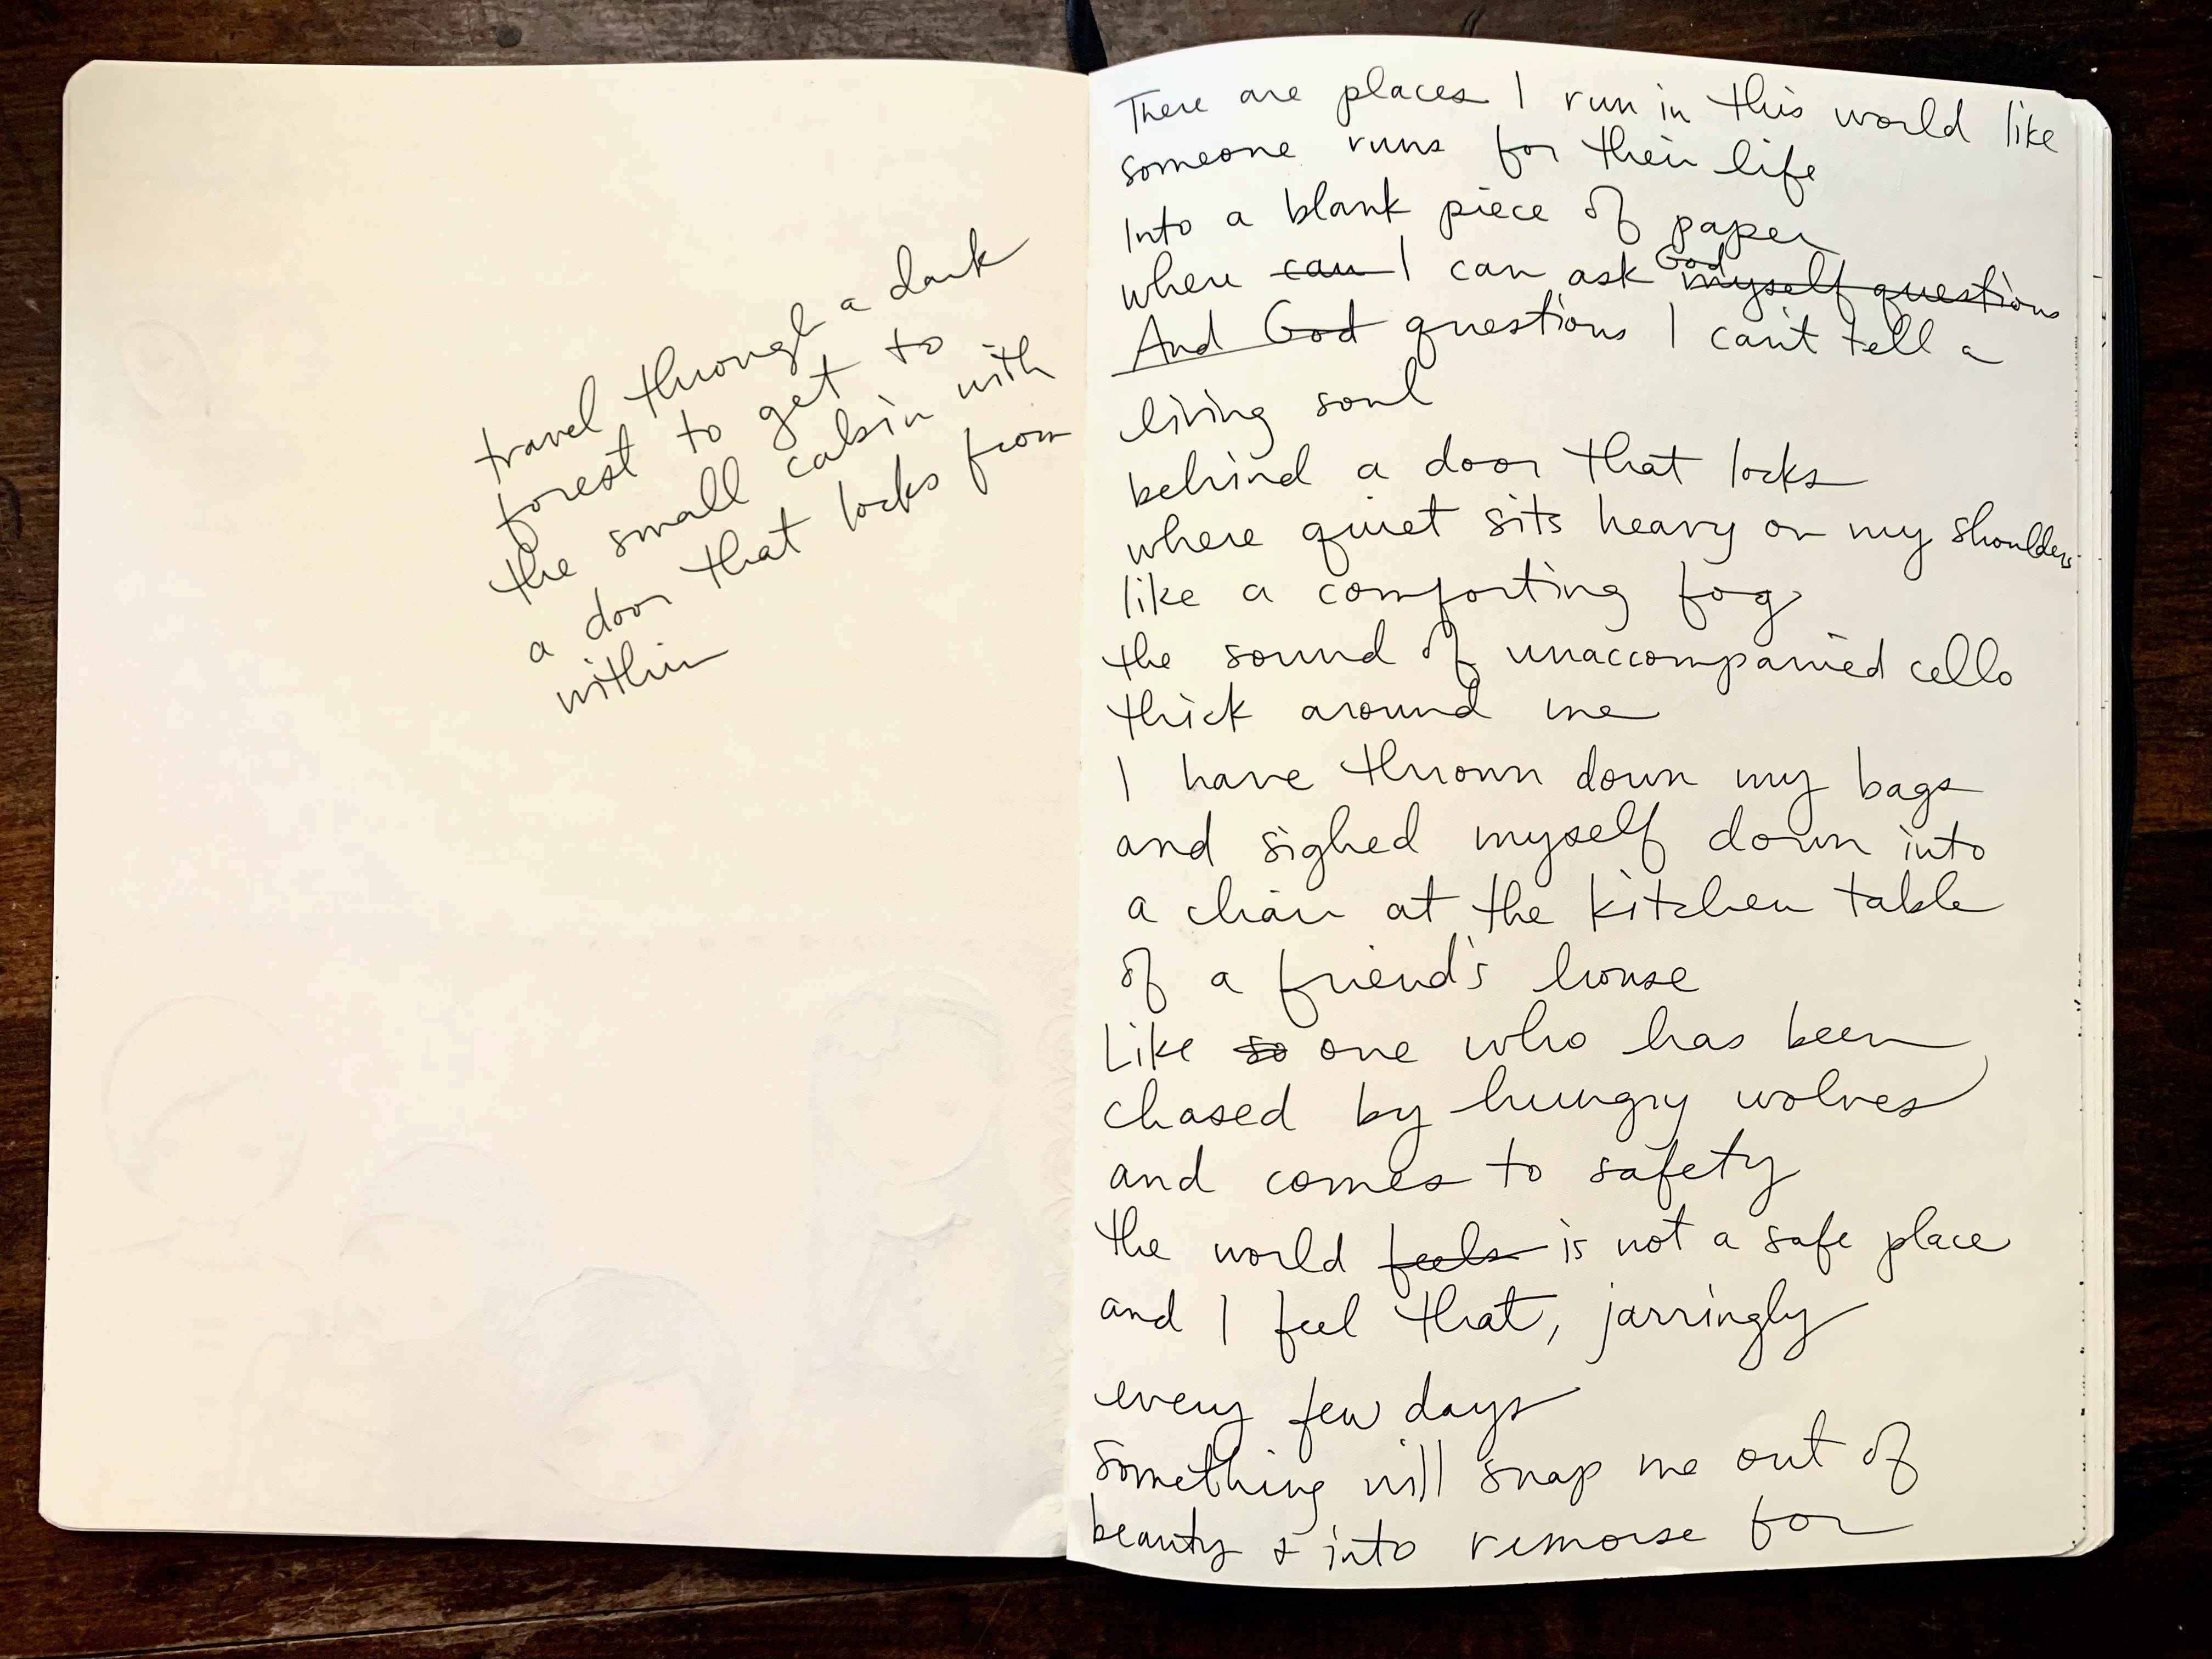 travel through a dark
forest to get to
the small cabin with
a door that locks from
within
There are places I run in this world like
someone runs for their life
Into a blank piece of paper
where can I can ask God myself questions
And God questions I can't tell a
living soul
behind a door that locks
where quiet sits heavy on my shoulders
like a comforting fog
the sound of unaccompanied cello
thick around me
I have thrown down my bags
and sighed myself down into
a chair at the kitchen table
of a friend's house
Like so one who has been
chased by hungry wolves
and comes to safety
the world feels is not a safe place
and I feel that, jarringly
every few days
something will snap me out of
beauty & into remorse for